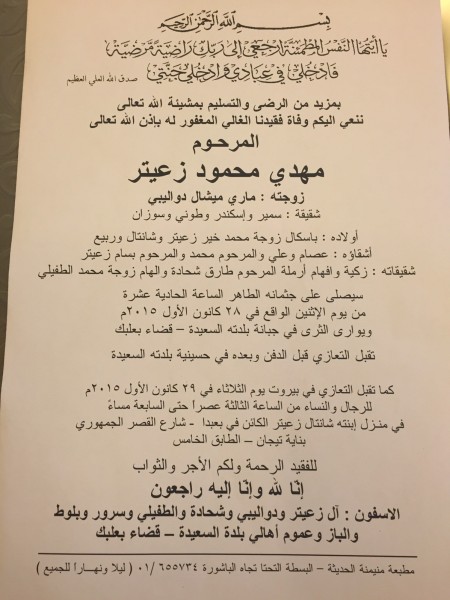 بسم الله الرحمن الرحيم
يا أيتها النفس المطمئنة ارجعي إلى ربك راضية مرضية
فادخلي في عبادي وادخلي جنتي
صدق الله العلي العظيم
بمزيد من الرضى والتسليم بمشيئة الله تعالى
ننعي اليكم وفاة فقيدنا الغالي المغفور له بإذن الله تعالى
المرحوم
مهدي محمود زعيتر
زوجته : ماري ميشال دواليبي
شقيقة : سمير وإسكندر وطوني وسوزان
أولاده : باسكال زوجة محمد خير زعيتر وشانتال وربيع
أشقاؤه : عصام وعلي والمرحوم محمد والمرحوم بسام زعيتر
شقيقاته : زكية وافهام أرملة المرحوم طارق شحادة والهام زوجة محمد الطفيلي
سيصلى على جثمانه الطاهر الساعة الحادية عشرة
من يوم الإثنين الواقع في ٢٨ كانون الأول ٢٠١٥م
ويوارى الثرى في جبانة بلدته السعيدة – قضاء بعلبك
تقبل التعازي قبل الدفن وبعده في حسينية بلدته السعيدة
كما تقبل التعازي في بيروت يوم الثلاثاء في ٢٩ كانون الأول ٢٠١٥م
للرجال والنساء من الساعة الثالثة عصراً حتى السابعة مساءً
في منزل إبنته شانتال زعيتر الكائن في بعبدا - شارع القصر الجمهوري
بناية تيجان – الطابق الخامس
للفقيد الرحمة ولكم الأجر والثواب
إنّا لله وإنّا إليه راجعون
الاسفون : آل زعيتر ودواليبي وشحادة والطفيلي وسرور وبلوط
والباز وعموم أهالي بلدة السعيدة – قضاء بعلبك
مطبعة منيمنة الحديثة – البسطة التحتا تجاه الباشورة ٦٥٥٧٣٤ /٠١ ( ليلا ونهـاراً للجميع )